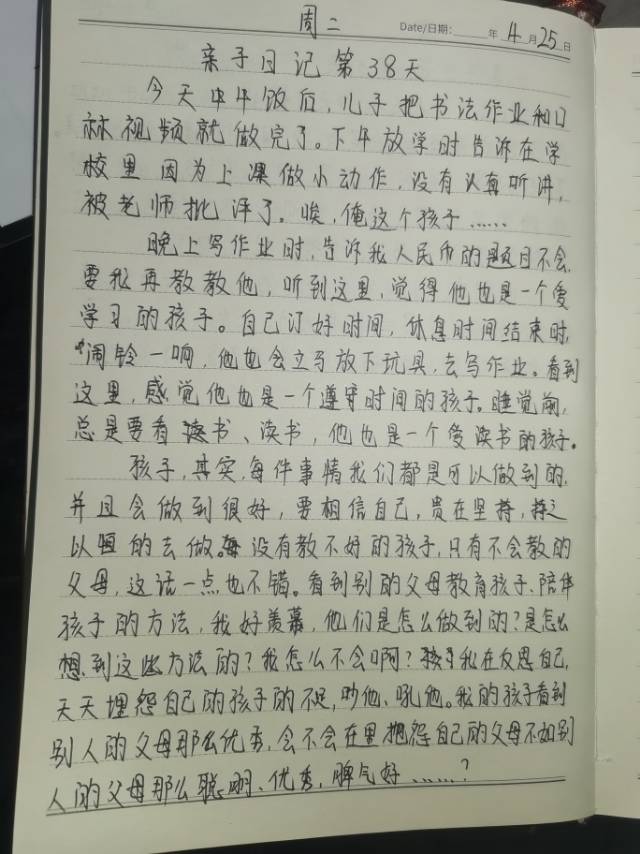 周二
Date/日期: 年 4 月 25 日
亲子日记第38天
今天中午饭后，儿子把书法作业和口
秫视频就做完了。下午放学时告诉在学
校里因为上课做小动作，没有认真听讲，
被老师批评了。唉，俺这个孩子……
晚上写作业时，告诉我人民币的题目不会，
要我再教教他，听到这里，觉得他也是一个爱
学习的孩子。自己订好时间，休息时间结束时，
闹铃一响，他也会立马放下玩具，去写作业。看到
这里，感觉他也是一个遵守时间的孩子。睡觉前，
总是要看书、读书，他也是一个爱读书的孩子。
孩子，其实，每件事情我们都是可以做到的，
并且会做到很好，要相信自己，贵在坚持，持之
以恒的去做。没有教不好的孩子，只有不会教的
父母，这话一点也不错。看到别的父母教育孩子、陪伴
孩子的方法，我好羡慕，他们是怎么做到的？是怎么
想到这些方法的？我怎么不会啊？我在反思自己，
天天埋怨自己的孩子的不足，吵他、吼他。我的孩子看到
别人的父母那么优秀，会不会在里抱怨自己的父母不如别
人的父母那么聪明、优秀，脾气好……？